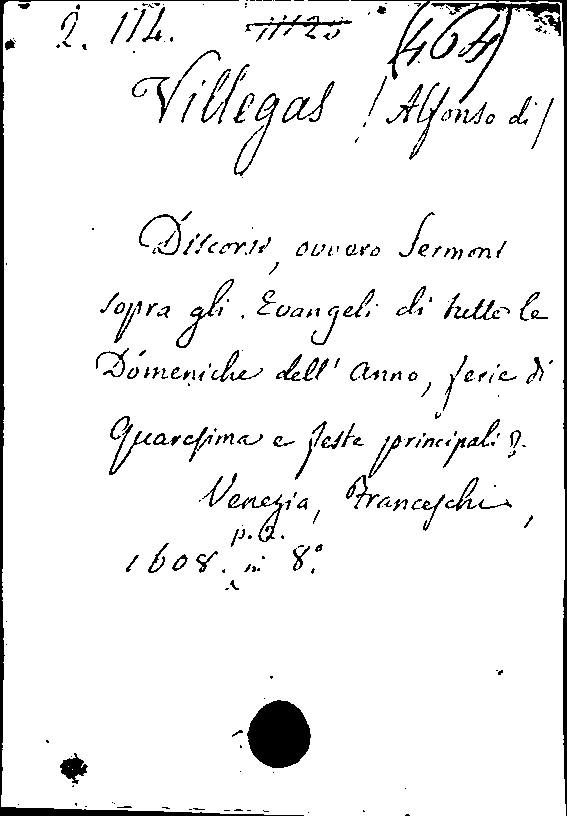 2. 114. 11125 (464)
Villegas / Alfonso di /
Discorsi, ovvero Sermoni
sopra gli Evangeli di tutte le
Domeniche dell' anno, ferie di
Quaresima e feste principali
Venezia, Franceschi,
p. 2.
1608. in 8.º